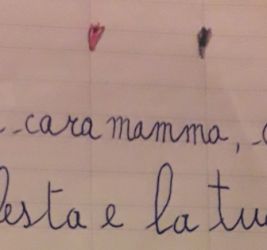 cara mamma,
esta e la tu